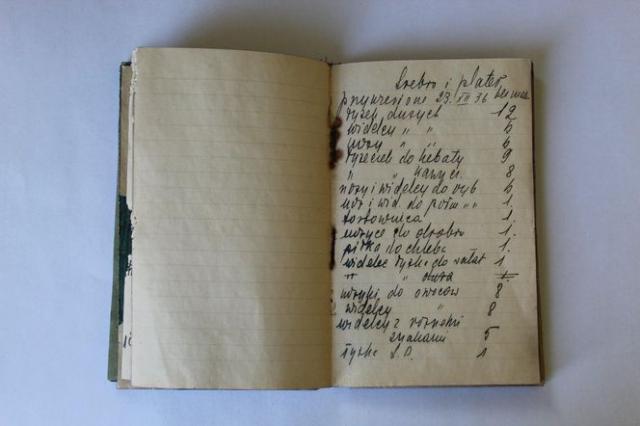 Srebro i plater
przywiezione 23.XII 36
łyżek dużych 12
widelcy " " 6
noży " " 6
łyżeczek do herbaty 9
" " kawy 8
noży i widelcy do ryb 6
nóż i wid. do półm " " 1.
tortownica 1.
nożyce do drobiu 1.
piłka do chleba 1.
widelec łyżka do sałat 1
" " duża 1.
nożyki do owoców 8
widelcy " 8
widelcy z różnemi
znakami 5
łyżka S.P. 1